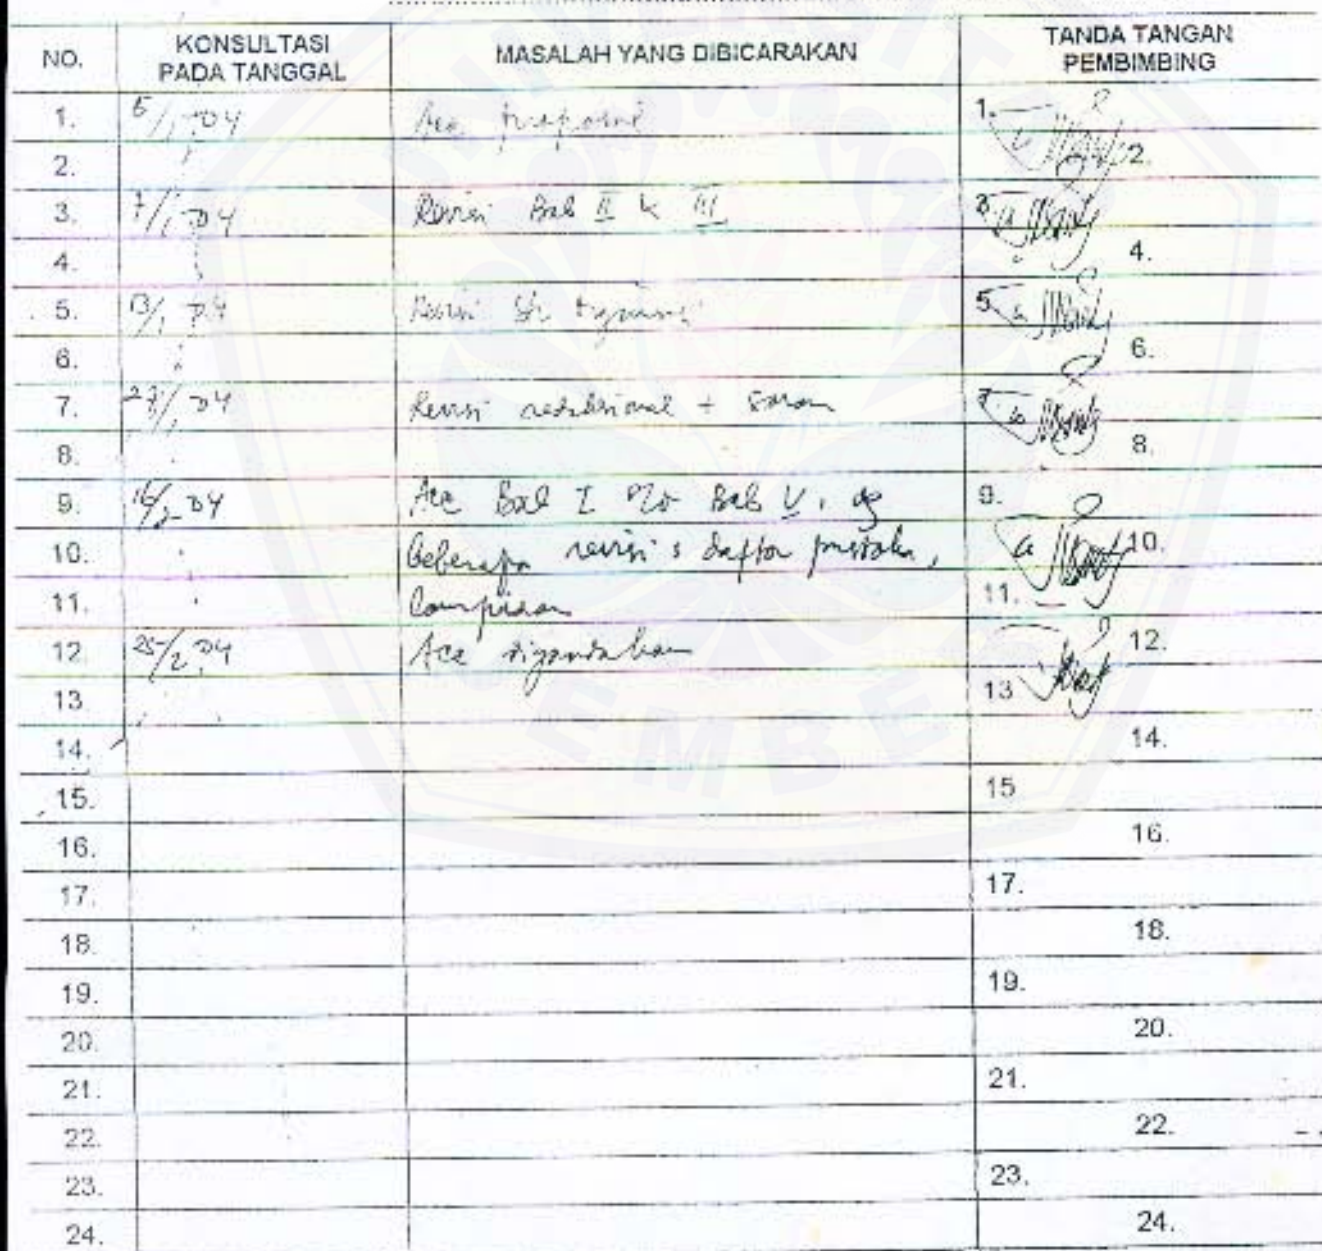 NO. KONSULTASI PADA TANGGAL MASALAH YANG DIBICARAKAN TANDA TANGAN PEMBIMBING
1. 5/1 04 Acc proposal 1.
2. 2.
3. 7/1 04 Revisi Bab II & III 3.
4. 4.
5. 13/1 04 Revisi 5.
6. 6.
7. 27/1 04 Revisi redaksional + saran 7.
8. 8.
9. 16/2 04 Acc Bab I Bab V, dg 9.
10. beberapa revisi : daftar pustaka, 10.
11. lampiran 11.
12. 25/2 04 Acc digandakan 12.
13. 13
14. 14.
15. 15
16. 16.
17. 17.
18. 18.
19. 19.
20. 20.
21. 21.
22. 22.
23. 23.
24. 24.
EMBE